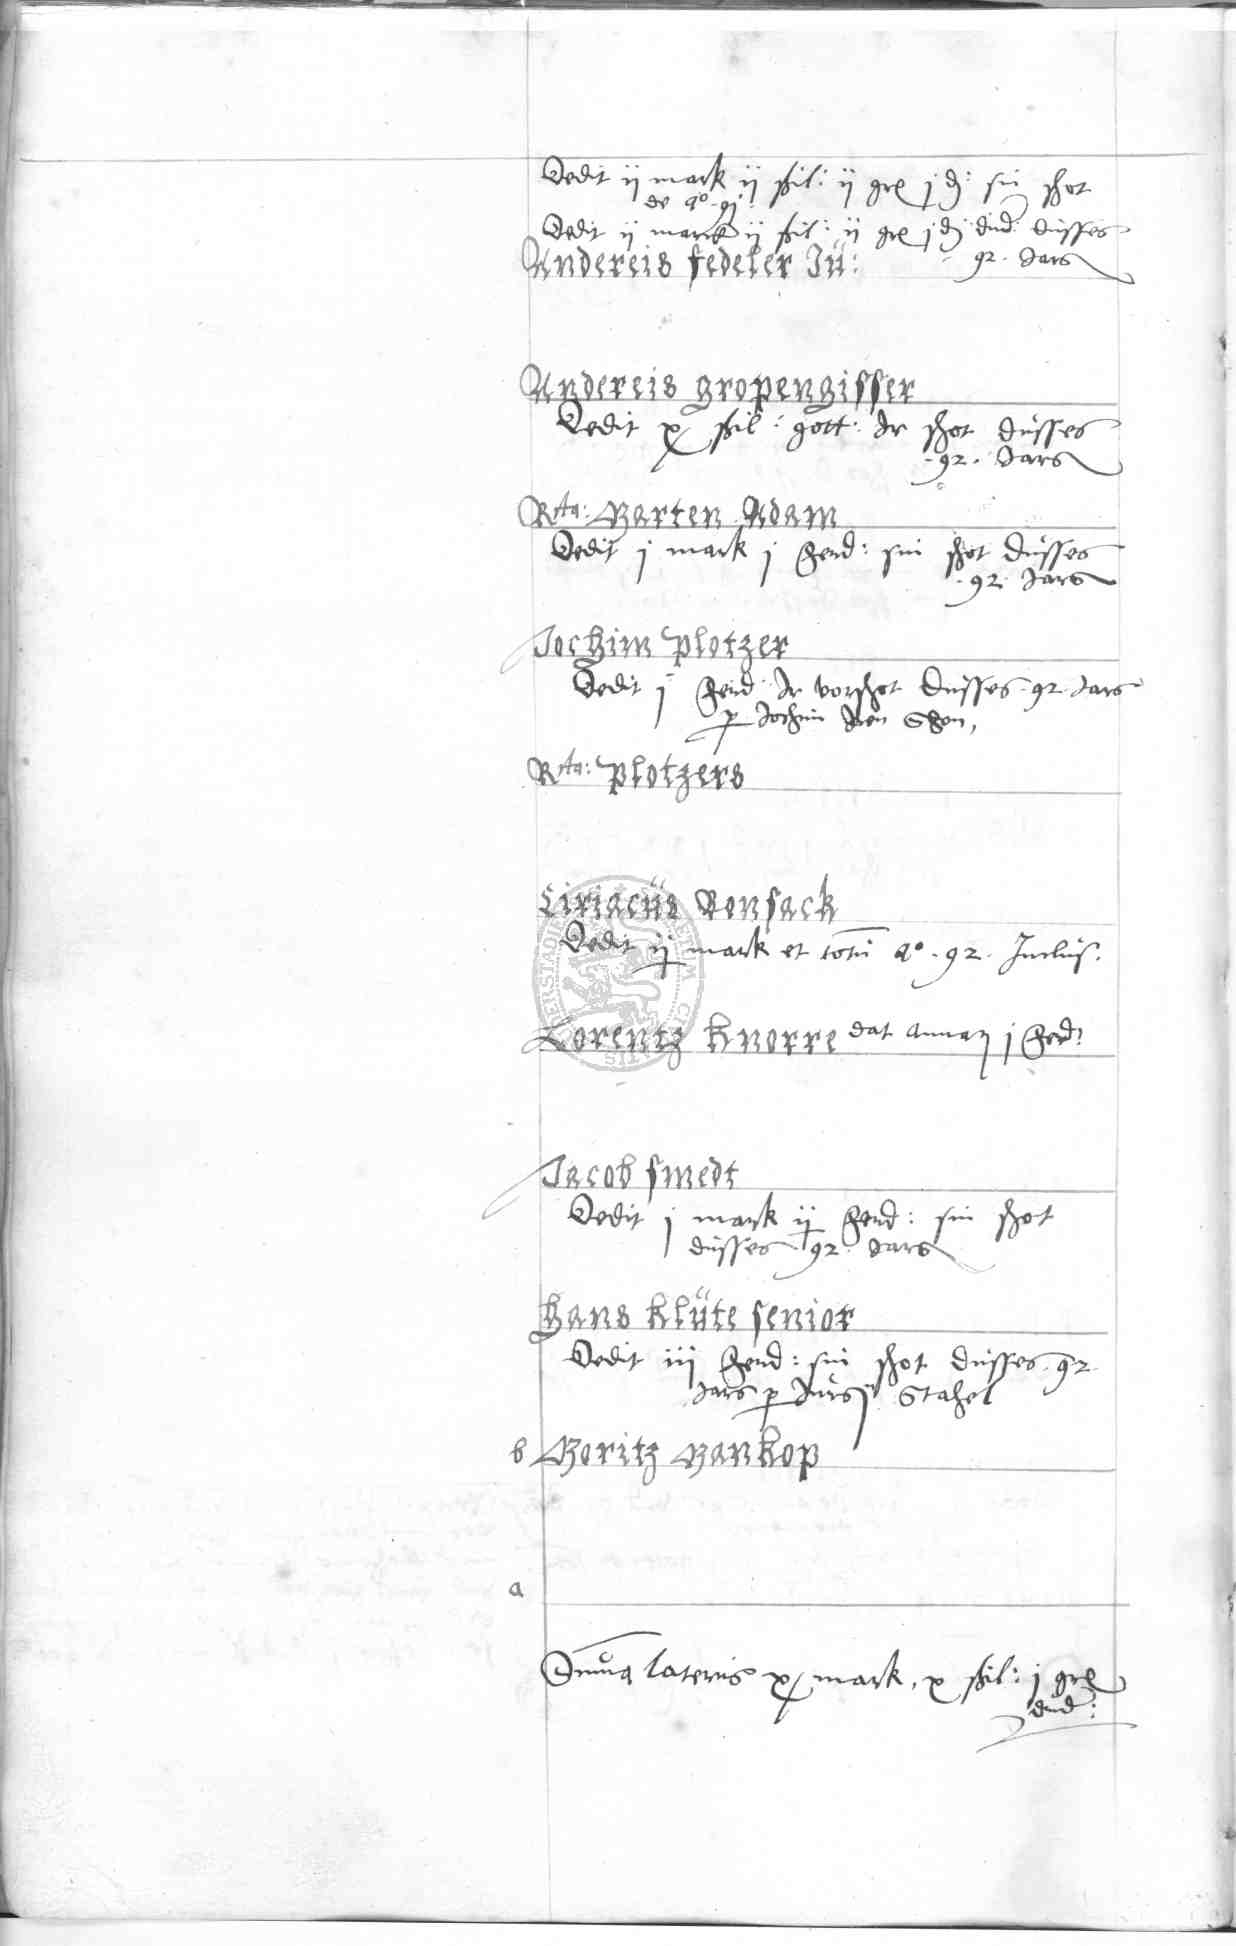 Dedit ij mark ij ßil: ij gr j d: sin shot
de ao 91
Dedit ij marck ij ßil: ij gr j d düsses
92. Jars
Andereis fedeler Jü:
Andereis gropengisser
Dedit x ßil: gott: Ir shot düsses
.92. Jars
Rta: Marten Adam
Dedit j mark j ferd: sin shot düsses
.92. Jars
Jochim plotzer
Dedit j ferd Ir vorshot düsses .92. Jars
p Jochim
Rta: plotzers
Ciriacüs Rensack
Dedit ij mark et totū ao .92. Inclus.
Lorentz Knorre dat j ferd:
Jacob smedt
Dedit j mark ij ferd: sin shot
düsses 92. Jars
Hans klüte senior
Dedit iij ferd: sin shot düsses .92.
Jars p Stahel
b Moritz Mankop
a
Suma lateris x mark, x ßil: j gr